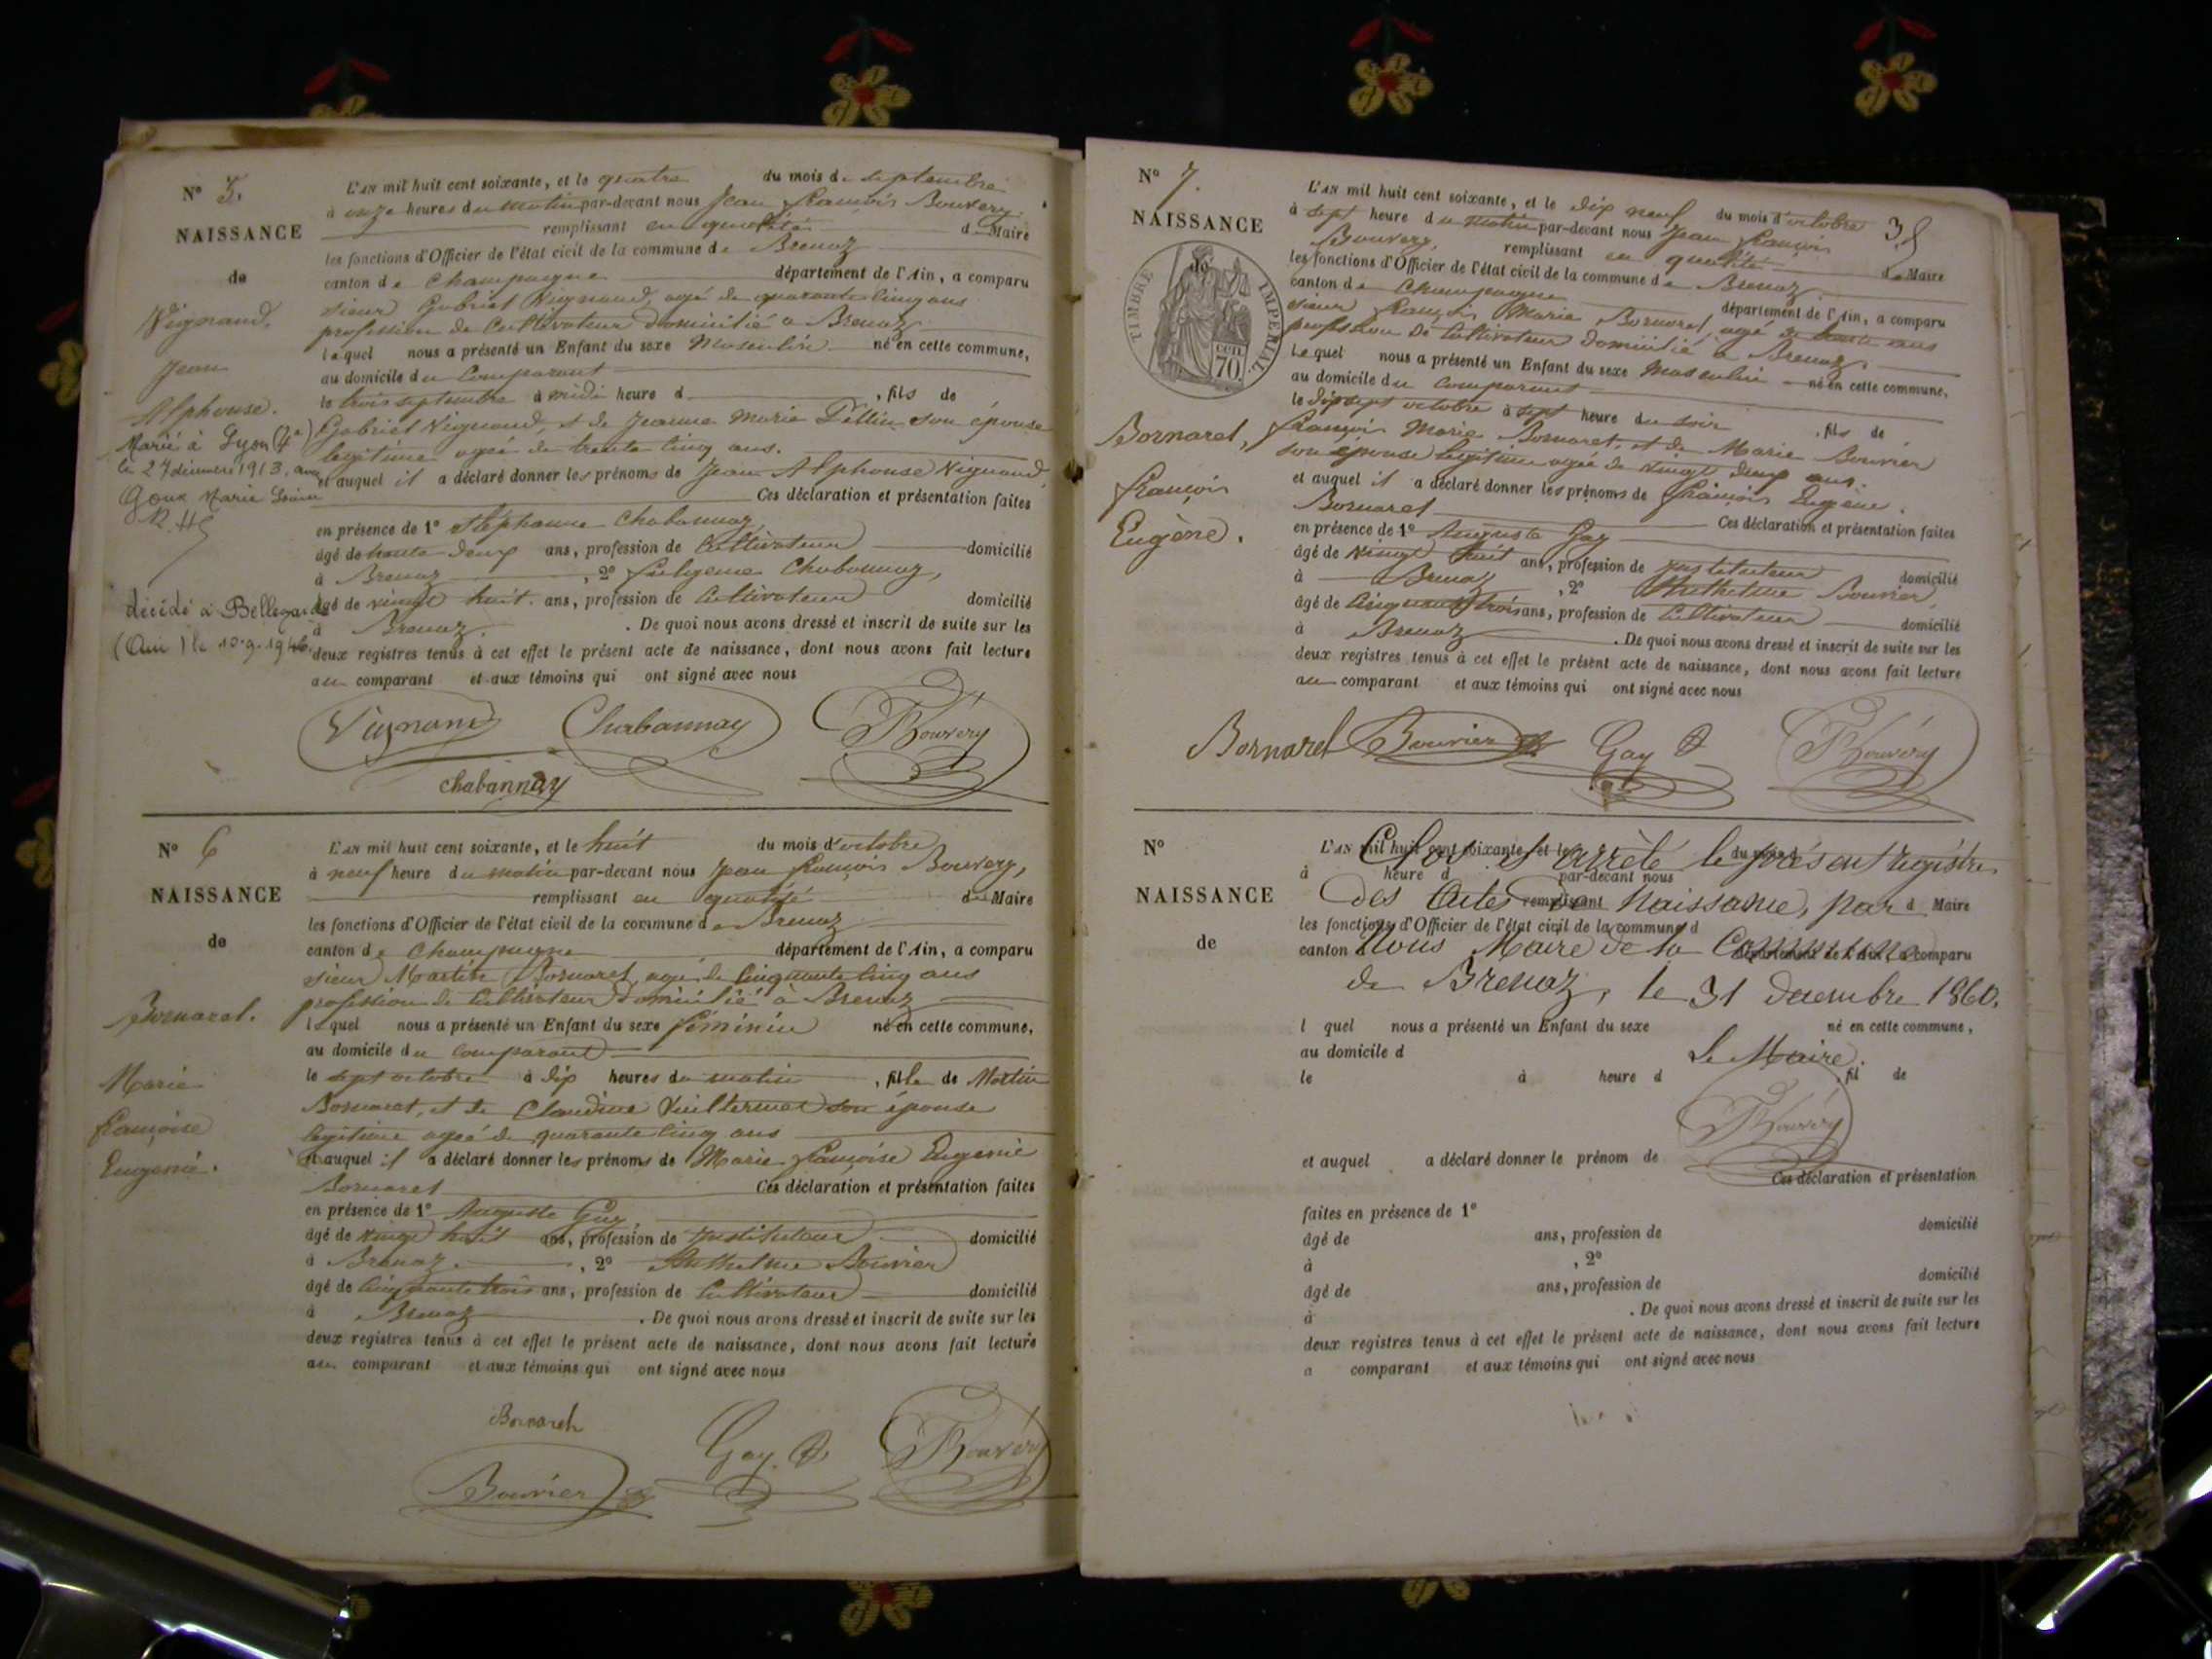 N° 5.
NAISSANCE
de
Vignand,
Jean
Alphonse.
Marié à Lyon (4e)
le 27 décembre 1913, avec
Goux Marie
décédé à Bellegarde
(Ain) le 10.9.1946.
L'AN mil huit cent soixante, et le quatre du mois de septembre
à onze heures du matin par-devant nous Jean François Bouvery,
remplissant en qualité de Maire
les fonctions d'Officier de l'état civil de la commune de Brenaz
canton de Champagne département de l'Ain, a comparu
sieur Gabriel Vignand, agé de quarante cinq ans
profession de Cultivateur domicilié à Brenaz
lequel nous a présenté un Enfant du sexe Masculin né en cette commune,
au domicile du Comparant
le trois septembre à midi heure d , fils de
Gabriel Vignand, et de Jeanne Marie son épouse
legitime agée de trente cinq ans.
et auquel il a déclaré donner les prénoms de Jean Alphonse Vignand,
Ces déclaration et présentation faites
en présence de 1° Chabannay,
âgé de trente deux ans, profession de Cultivateur domicilié
à Brenaz , 2° Chabannay,
âgé de vingt huit ans, profession de Cultivateur domicilié
à Brenaz. . De quoi nous avons dressé et inscrit de suite sur les
deux registres tenus à cet effet le présent acte de naissance, dont nous avons fait lecture
au comparant et aux témoins qui ont signé avec nous
Vignand Chabannay Bouvery
chabannay
N° 6
NAISSANCE
de
Bornarel.
Marie
Françoise
Eugenie.
L'AN mil huit cent soixante, et le huit du mois d'octobre
à neuf heure du matin par-devant nous Jean François Bouvery,
remplissant en qualité de Maire
les fonctions d'Officier de l'état civil de la commune de Brenaz
canton de Champagne département de l'Ain, a comparu
sieur Martin Bornarel, agé de Cinquante cinq ans
profession de Cultivateur domicilié à Brenaz
lequel nous a présenté un Enfant du sexe féminin né en cette commune,
au domicile du Comparant
le sept octobre à dix heures du matin , fille de Martin
Bornarel, et de Claudine Vuillermet son épouse
legitime agée de quarante cinq ans
et auquel il a déclaré donner les prénoms de Marie Françoise Eugenie
Bornarel Ces déclaration et présentation faites
en présence de 1° Auguste Gay
âgé de vingt huit ans, profession de Instituteur domicilié
à Brenaz. , 2° Anthelme Bouvier
âgé de Cinquante trois ans, profession de Cultivateur domicilié
à Brenaz . De quoi nous avons dressé et inscrit de suite sur les
deux registres tenus à cet effet le présent acte de naissance, dont nous avons fait lecture
au comparant et aux témoins qui ont signé avec nous
Bornarel
Bouvier Gay Bouvery
N° 7.
NAISSANCE
de
TIMBRE IMPERIAL
70
Bornarel,
François
Eugène.
L'AN mil huit cent soixante, et le dix neuf du mois d'octobre
à sept heure du matin par-devant nous Jean François
Bouvery, remplissant en qualité de Maire
les fonctions d'Officier de l'état civil de la commune de Brenaz
canton de Champagne département de l'Ain, a comparu
sieur François Marie Bornarel, agé de trente ans
profession de Cultivateur domicilié à Brenaz.
lequel nous a présenté un Enfant du sexe Masculin né en cette commune,
au domicile du Comparant
le dix sept octobre à sept heure du soir , fils de
François Marie Bornarel, et de Marie Bouvier
son épouse legitime agée de vingt deux ans.
et auquel il a déclaré donner les prénoms de François Eugène.
Bornarel Ces déclaration et présentation faites
en présence de 1° Auguste Gay
âgé de vingt huit ans, profession de Instituteur domicilié
à Brenaz , 2° Anthelme Bouvier,
âgé de Cinquante trois ans, profession de Cultivateur domicilié
à Brenaz . De quoi nous avons dressé et inscrit de suite sur les
deux registres tenus à cet effet le présent acte de naissance, dont nous avons fait lecture
au comparant et aux témoins qui ont signé avec nous
Bornarel Bouvier Gay Bouvery
N°
NAISSANCE
de
L'AN mil huit cent soixante, et le du mois d
Clos et arrêté le présent registre
à heure d par-devant nous
des Actes de Naissance, par
remplissant d Maire
les fonctions d'Officier de l'état civil de la commune d
Nous Maire de la Commune
canton département de l'Ain, a comparu
de Brenaz, le 31 decembre 1860.
l quel nous a présenté un Enfant du sexe né en cette commune,
au domicile d
Le Maire.
le à heure d , fil de
Bouvery
et auquel a déclaré donner le prénom de
Ces déclaration et présentation
faites en présence de 1°
âgé de ans, profession de domicilié
à , 2°
âgé de ans, profession de domicilié
à . De quoi nous avons dressé et inscrit de suite sur les
deux registres tenus à cet effet le présent acte de naissance, dont nous avons fait lecture
a comparant et aux témoins qui ont signé avec nous